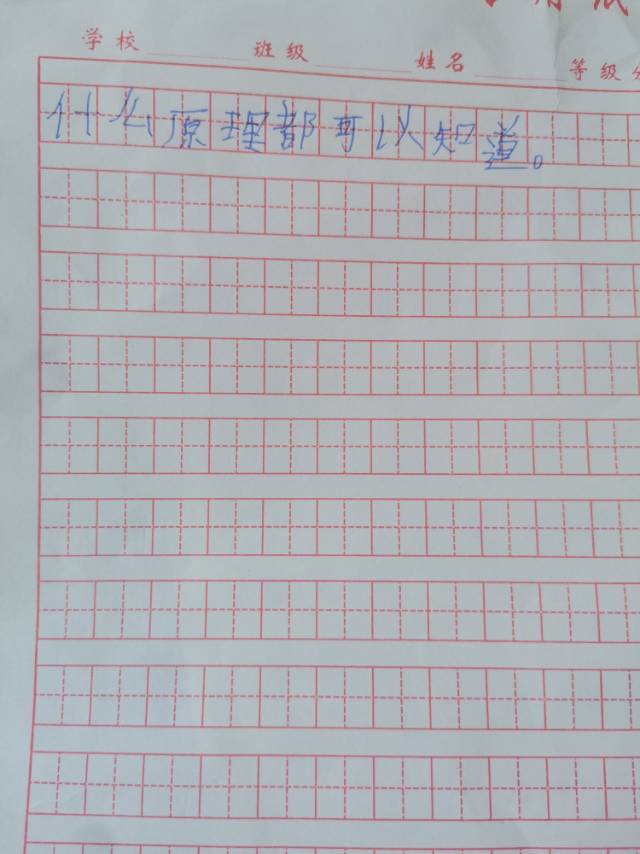 学校 班级 姓名 等级
什么原理都可以知道。